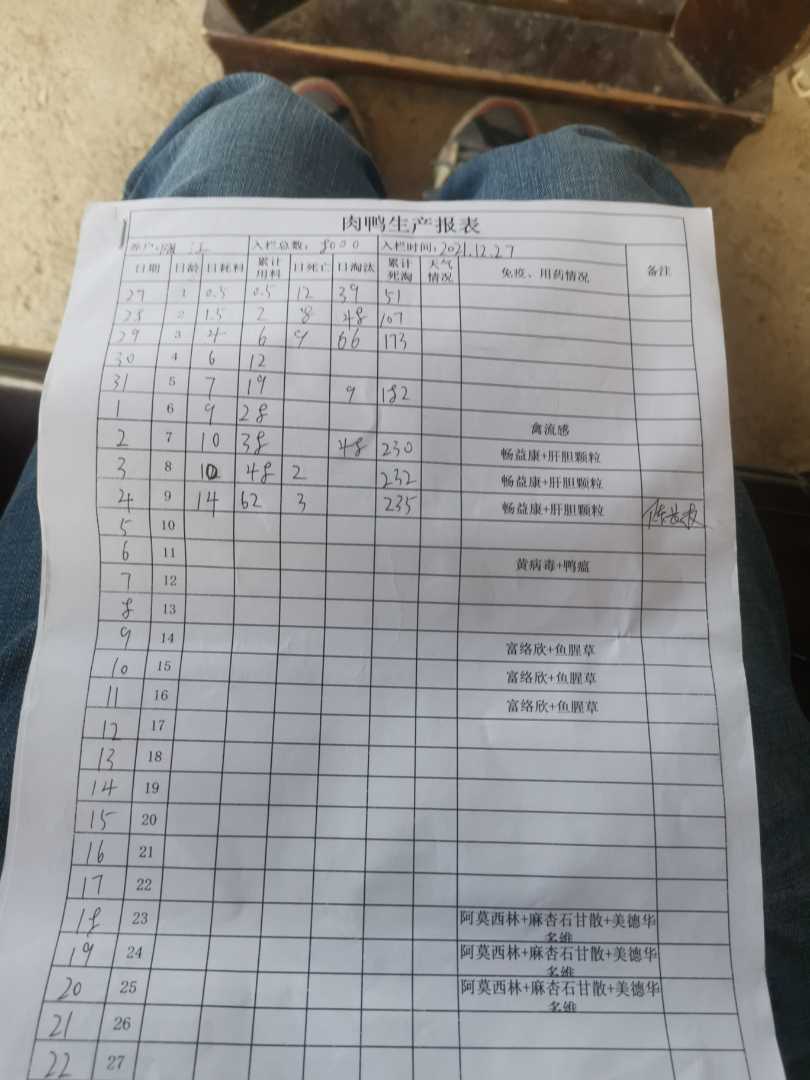 肉鸭生产报表
养户: 入栏总数: 8000 入栏时间: 2021.12.27
日期 日龄 日耗料 累计用料 日死亡 日淘汰 累计死淘 天气情况 免疫、用药情况 备注
27 1 0.5 0.5 12 39 51
28 2 1.5 2 8 48 107
29 3 4 6 9 66 173
30 4 6 12
31 5 7 19 9 182
1 6 9 28
2 7 10 38 48 230 禽流感
3 8 10 48 2 232 畅益康+肝胆颗粒
4 9 14 62 3 235 畅益康+肝胆颗粒
5 10 畅益康+肝胆颗粒
6 11
7 12 黄病毒+鸭瘟
8 13
9 14
10 15 富络欣+鱼腥草
11 16 富络欣+鱼腥草
12 17 富络欣+鱼腥草
13 18
14 19
15 20
16 21
17 22
18 23 阿莫西林+麻杏石甘散+美德华多维
19 24 阿莫西林+麻杏石甘散+美德华多维
20 25 阿莫西林+麻杏石甘散+美德华多维
21 26
22 27